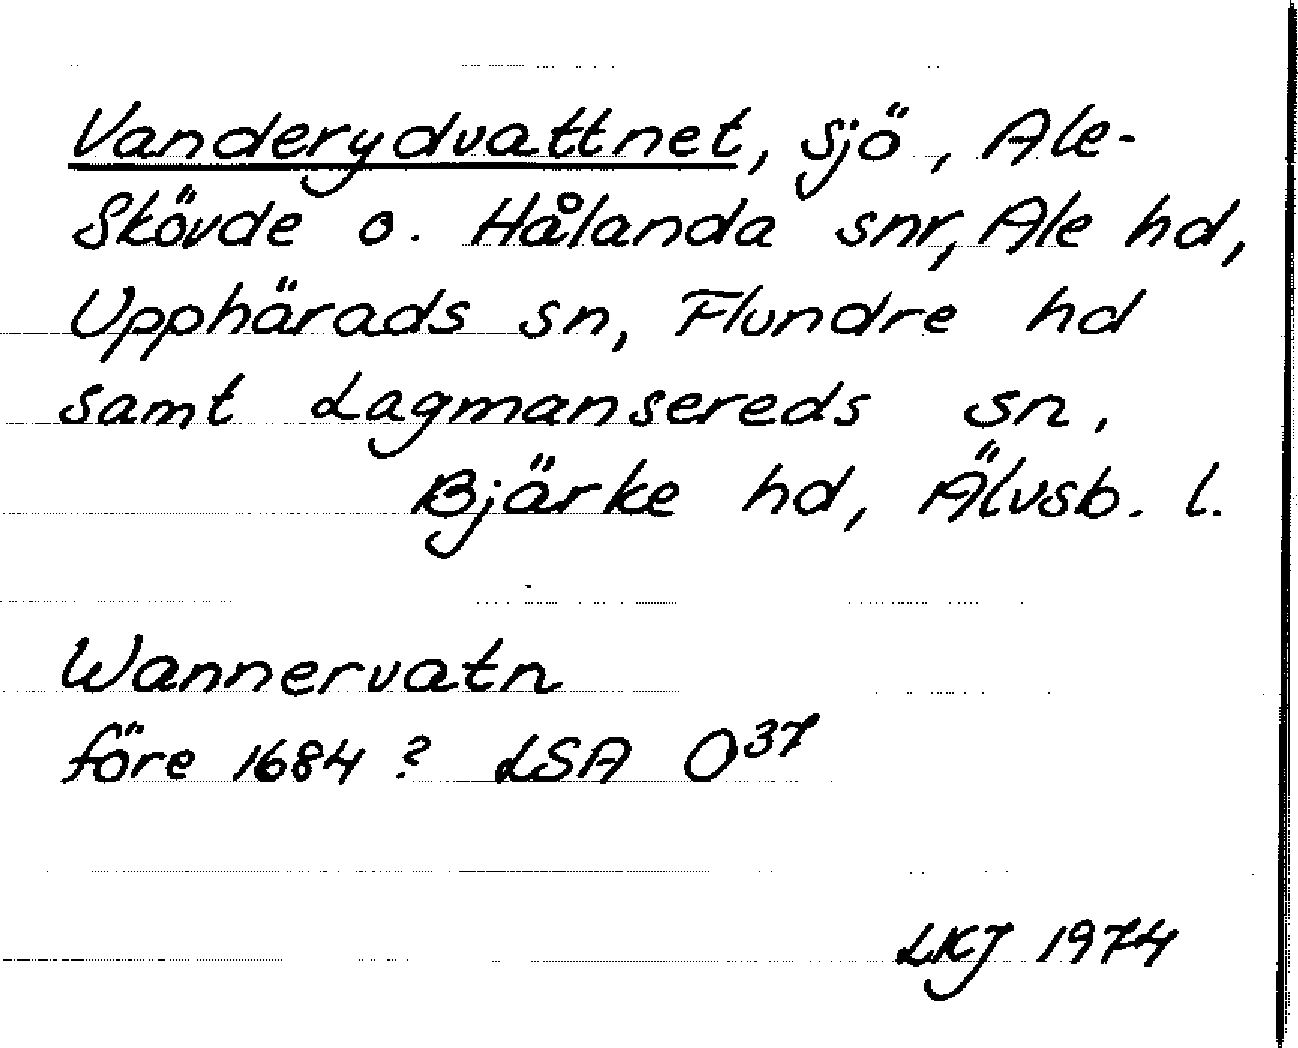 Vanderydvattnet, sjö, Ale-
Skövde o. Hålanda snr, Ale hd,
Upphärads sn, Flundre hd
samt Lagmansereds sn,
Bjärke hd, Älvsb. l.
Wannervatn
före 1684? LSA O³⁷
LKJ 1974